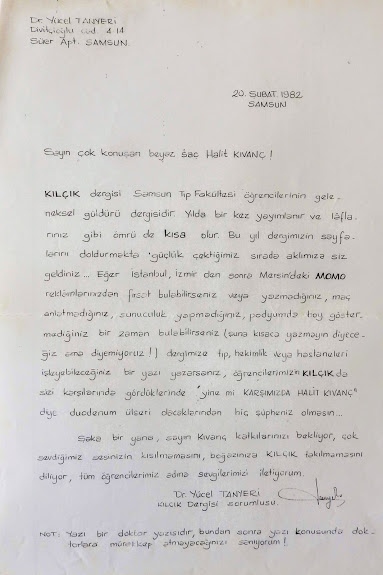 Dr. Yücel TANYERİ
Divitçioğlu cad. 4/4
Sürer Apt. SAMSUN
20. ŞUBAT. 1982
SAMSUN
Sayın çok konuşan beyaz saç Halit KIVANÇ!
KILÇIK dergisi Samsun Tıp Fakültesi öğrencilerinin gele
neksel güldürü dergisidir. Yılda bir kez yayımlanır ve lâfla
rınız gibi ömrü de kısa olur. Bu yıl dergimizin sayfa
larını doldurmakta güçlük çektiğimiz sırada aklımıza siz
geldiniz... Eğer İstanbul, İzmir den sonra Mersin'deki MOMO
reklâmlarınızdan fırsat bulabilirseniz veya yazmadığınız, maç
anlatmadığınız, sunuculuk yapmadığınız, podyumda boy göster
mediğiniz bir zaman bulabilirseniz (şuna kısaca yazmayın diyece
ğiz ama diyemiyoruz!) dergimize tıp, hekimlik veya hastaneleri
işleyebileceğiniz bir yazı yazarsanız, öğrencilerimizin KILÇIK da
sizi karşılarında gördüklerinde "yine mi KARŞIMIZDA HALİT KIVANÇ"
diye duodenum ülseri olacaklarından hiç şüpheniz olmasın...
Şaka bir yana, sayın Kıvanç katkılarınızı bekliyor, çok
sevdiğimiz sesinizin kısılmamasını, boğazınıza KILÇIK takılmamasını
diliyor, tüm öğrencilerimiz adına sevgilerimizi iletiyorum.
Dr. Yücel TANYERİ
KILÇIK Dergisi sorumlusu.
NOT: Yazı bir doktor yazısıdır, bundan sonra yazı konusunda dok-
torlara mürekkep atmayacağınızı sanıyorum!